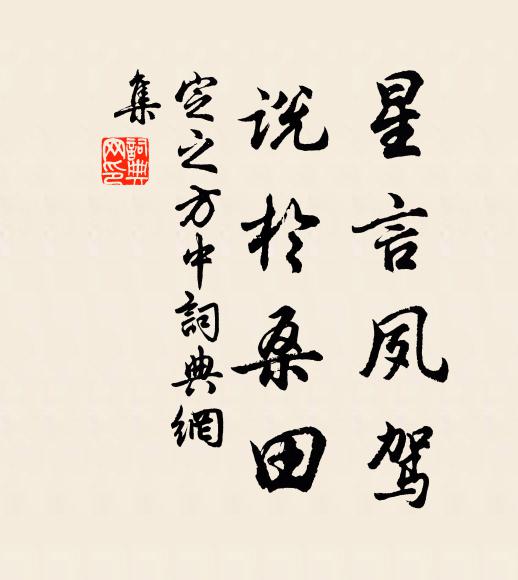 星言夙驾
说於桑田
定之方中詞典網
集
詞典网印